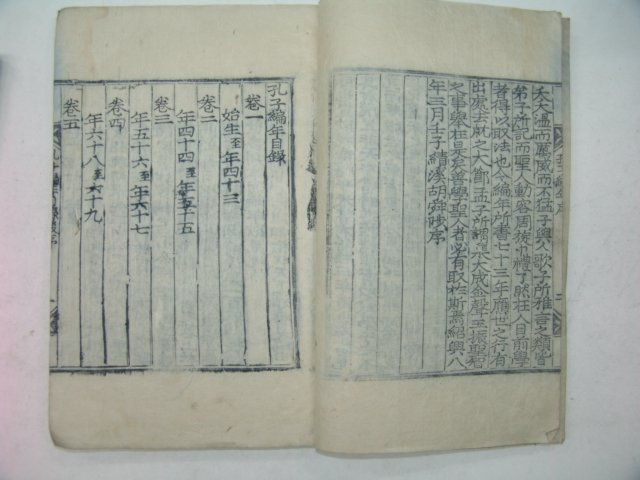 夫人溫而厲威而不猛子與人歌子所雅言之類皆
弟子所記而聖人動容周旋中禮了然在人目前學
者得以取法也今編年所書七十三年應世之行有
出處去就之大節孟子所謂集大成金聲玉振聖智
之事舉在是矣善學聖人者必有取於斯焉紹興八
年三月壬子績溪胡舜陟序
孔子編年目錄
卷一
始生至年四十三
卷二
年四十四至年五十五
卷三
年五十六至年六十七
卷四
年六十八至六十九
卷五